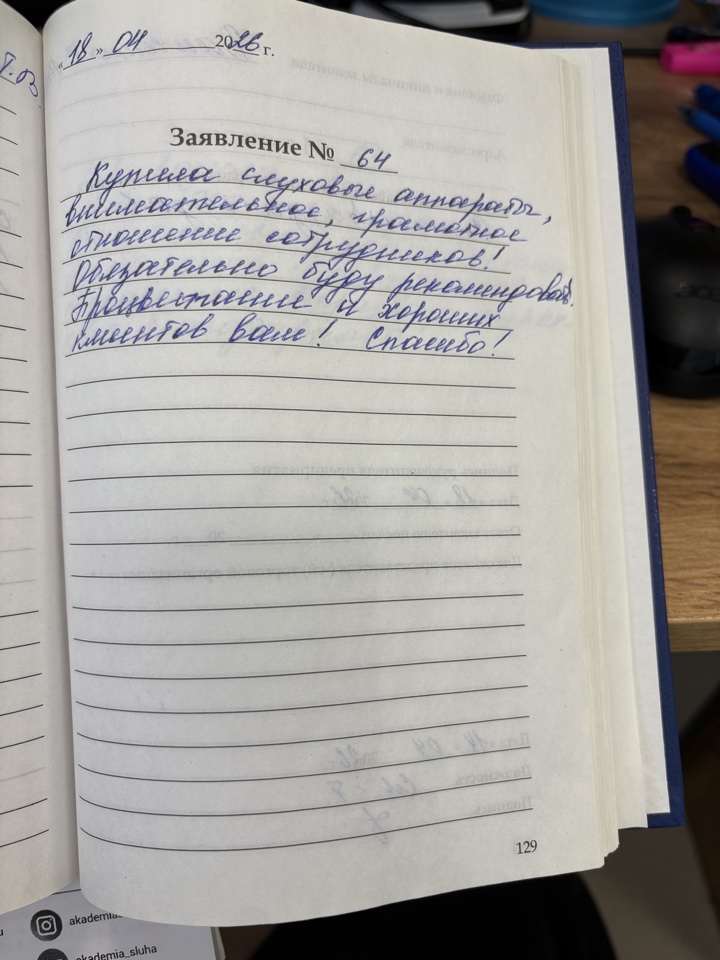 «18» 04 2026 г.
Заявление № 64
Купила слуховые аппараты,
внимательное, грамотное
отношение сотрудников!
Обязательно буду рекомендовать.
Процветание и хороших
клиентов вам! Спасибо!
129
akademia_sluha